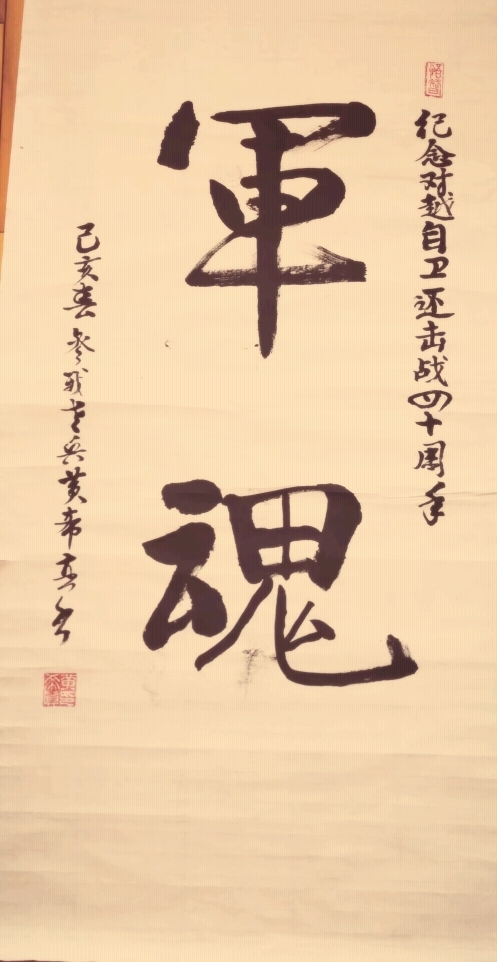 纪念对越自卫还击战四十周年
軍魂
己亥春 参战老兵黄希真书